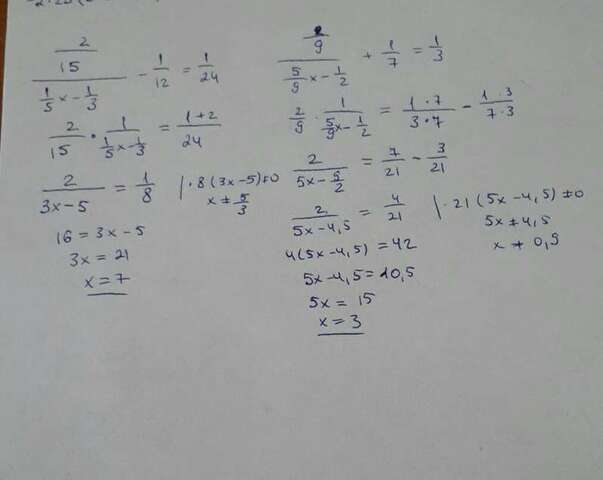 2/15 / (1/5 x - 1/3) - 1/12 = 1/24
2/15 · 1/(1/5 x - 1/3) = (1+2)/24
2/(3x-5) = 1/8 |· 8(3x-5)≠0
x ≠ 5/3
16 = 3x - 5
3x = 21
x = 7
2/9 / (5/9 x - 1/2) + 1/7 = 1/3
2/9 · 1/(5/9 x - 1/2) = (1·7)/(3·7) - (1·3)/(7·3)
2/(5x - 9/2) = 7/21 - 3/21
2/(5x-4,5) = 4/21 |· 21(5x-4,5)≠0
5x ≠ 4,5
x ≠ 0,9
4(5x-4,5) = 42
5x-4,5 = 10,5
5x = 15
x = 3